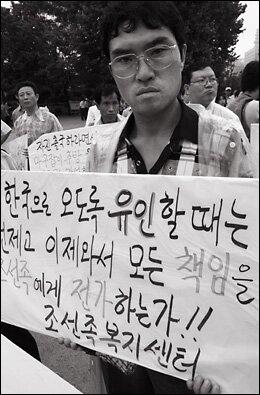 자진출국하라면
한국으로 오도록 유인할 때는
언제고 이제와서 모든 책임을
조선족에게 전가하는가!!
조선족복지센터